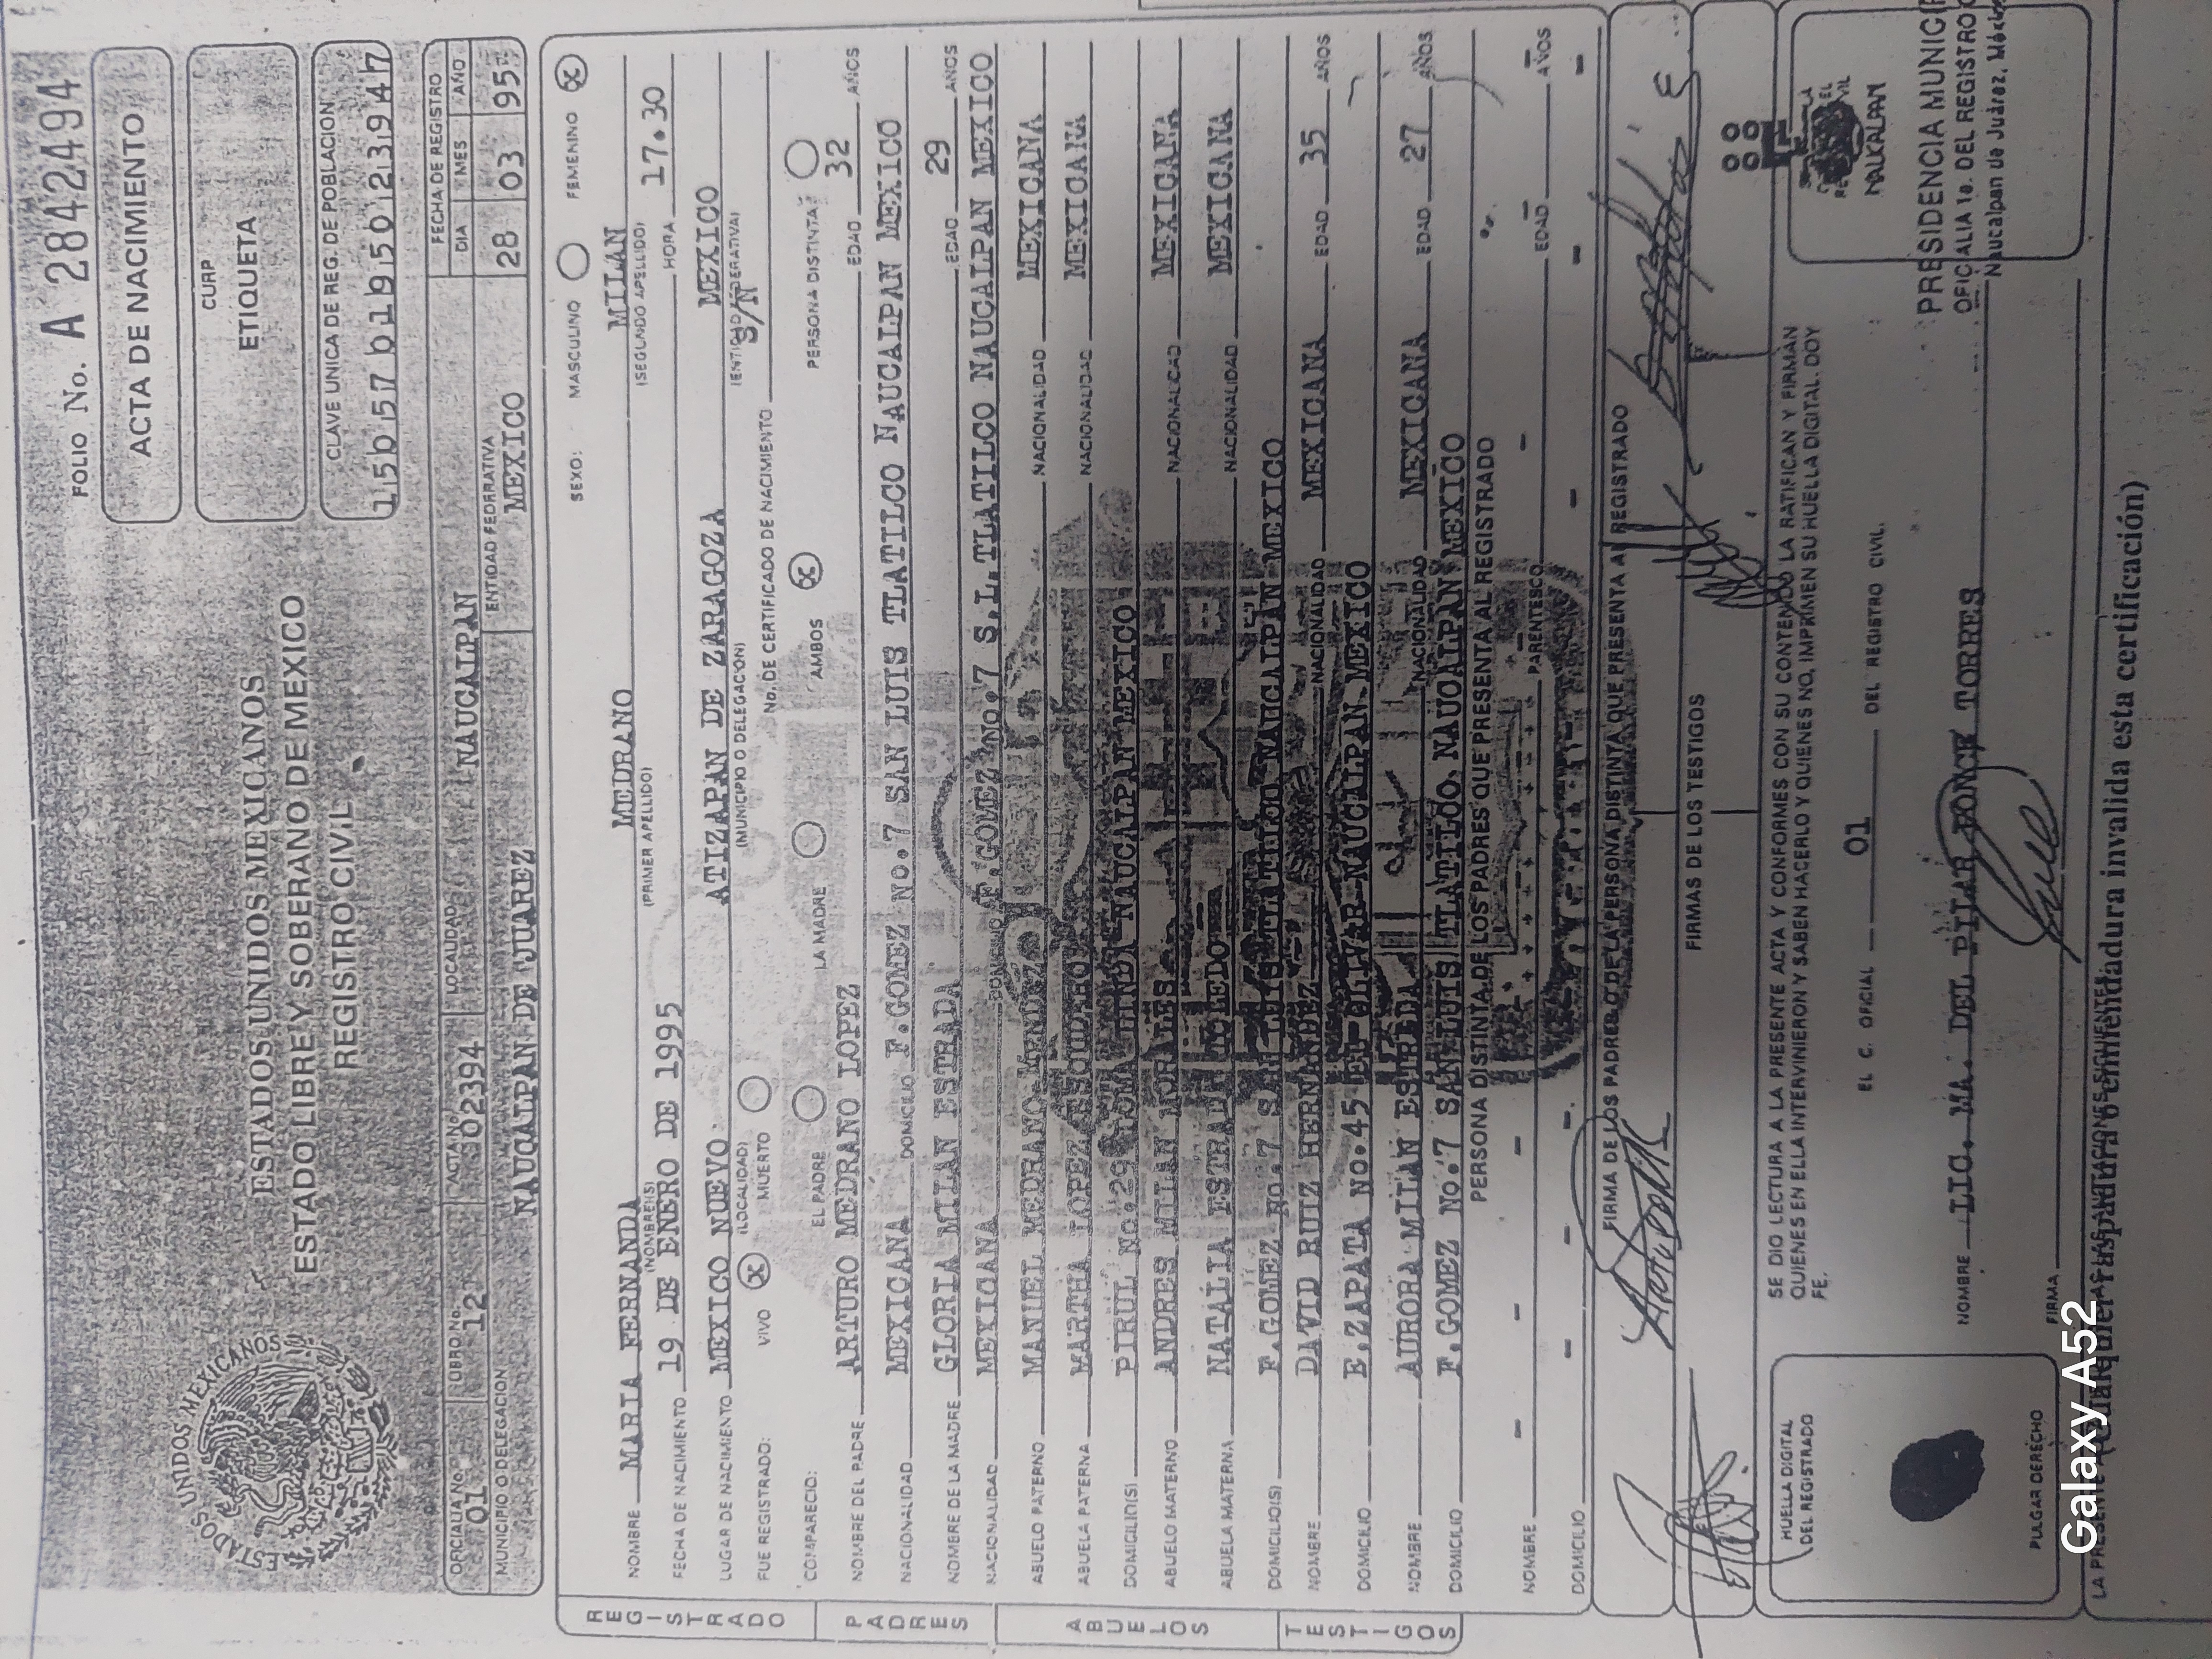 FOLIO No. A 2842494
ESTADOS UNIDOS MEXICANOS
ACTA DE NACIMIENTO
CURP
ETIQUETA
ESTADOS UNIDOS MEXICANOS
ESTADO LIBRE Y SOBERANO DE MEXICO
REGISTRO CIVIL
CLAVE UNICA DE REG. DE POBLACION
OFICIALIA No. LIBRO No. ACTA No. LOCALIDAD FECHA DE REGISTRO
DIA MES AÑO
01 12 302394 NAUCALPAN 28 03 95
MUNICIPIO O DELEGACION ENTIDAD FEDERATIVA
NAUCALPAN DE JUAREZ MEXICO
REGISTRADO
SEXO: MASCULINO FEMENINO X
NOMBRE MARIA FERNANDA MEDRANO MILAN
(NOMBRE(S) (PRIMER APELLIDO) (SEGUNDO APELLIDO)
FECHA DE NACIMIENTO 19 DE ENERO DE 1995 HORA 17.30
LUGAR DE NACIMIENTO MEXICO NUEVO ATIZAPAN DE ZARAGOZA MEXICO
(LOCALIDAD) (MUNICIPIO O DELEGACION) (ENTIDAD FEDERATIVA)
FUE REGISTRADO: VIVO X MUERTO No. DE CERTIFICADO DE NACIMIENTO S/N
COMPARECIO: EL PADRE LA MADRE AMBOS X PERSONA DISTINTA
PADRES
NOMBRE DEL PADRE ARTURO MEDRANO LOPEZ EDAD 32 AÑOS
NACIONALIDAD MEXICANA DOMICILIO F.GOMEZ No.7 SAN LUIS TLATILCO NAUCALPAN MEXICO
NOMBRE DE LA MADRE GLORIA MILAN ESTRADA EDAD 29 AÑOS
NACIONALIDAD MEXICANA DOMICILIO F.GOMEZ No.7 S.L.TLATILCO NAUCALPAN MEXICO
ABUELOS
ABUELO PATERNO MANUEL MEDRANO MENDEZ NACIONALIDAD MEXICANA
ABUELA PATERNA MARTHA LOPEZ NACIONALIDAD MEXICANA
DOMICILIO(S) PIRUL No.29 LOMA NAUCALPAN MEXICO
ABUELO MATERNO ANDRES MILAN MORALES NACIONALIDAD MEXICANA
ABUELA MATERNA NATALIA ESTRADA TOLEDO NACIONALIDAD MEXICANA
DOMICILIO(S) F.GOMEZ No.7 SAN LUIS TLATILCO NAUCALPAN MEXICO
TESTIGOS
NOMBRE DAVID RUIZ HERNANDEZ NACIONALIDAD MEXICANA EDAD 35 AÑOS
DOMICILIO E.ZAPATA No.45 EL OLIVAR NAUCALPAN MEXICO
NOMBRE AURORA MILAN ESTRADA NACIONALIDAD MEXICANA EDAD 27 AÑOS
DOMICILIO F.GOMEZ No.7 SAN LUIS TLATILCO NAUCALPAN MEXICO
PERSONA DISTINTA DE LOS PADRES QUE PRESENTA AL REGISTRADO
NOMBRE PARENTESCO EDAD AÑOS
DOMICILIO
FIRMA DE LOS PADRES O DE LA PERSONA DISTINTA QUE PRESENTA AL REGISTRADO
FIRMAS DE LOS TESTIGOS
SE DIO LECTURA A LA PRESENTE ACTA Y CONFORMES CON SU CONTENIDO LA RATIFICAN Y FIRMAN
QUIENES EN ELLA INTERVINIERON Y SABEN HACERLO Y QUIENES NO, IMPRIMEN SU HUELLA DIGITAL. DOY
FE.
HUELLA DIGITAL
DEL REGISTRADO
EL C. OFICIAL 01 DEL REGISTRO CIVIL.
NAUCALPAN
NOMBRE LIC. MA. DEL PILAR PONCE TORRES
PRESIDENCIA
OFICIALIA 1a. DEL REGISTRO
Naucalpan de Juárez,
PULGAR DERECHO
FIRMA
(Cualquier raspadura o enmendadura invalida esta certificación)
Galaxy A52